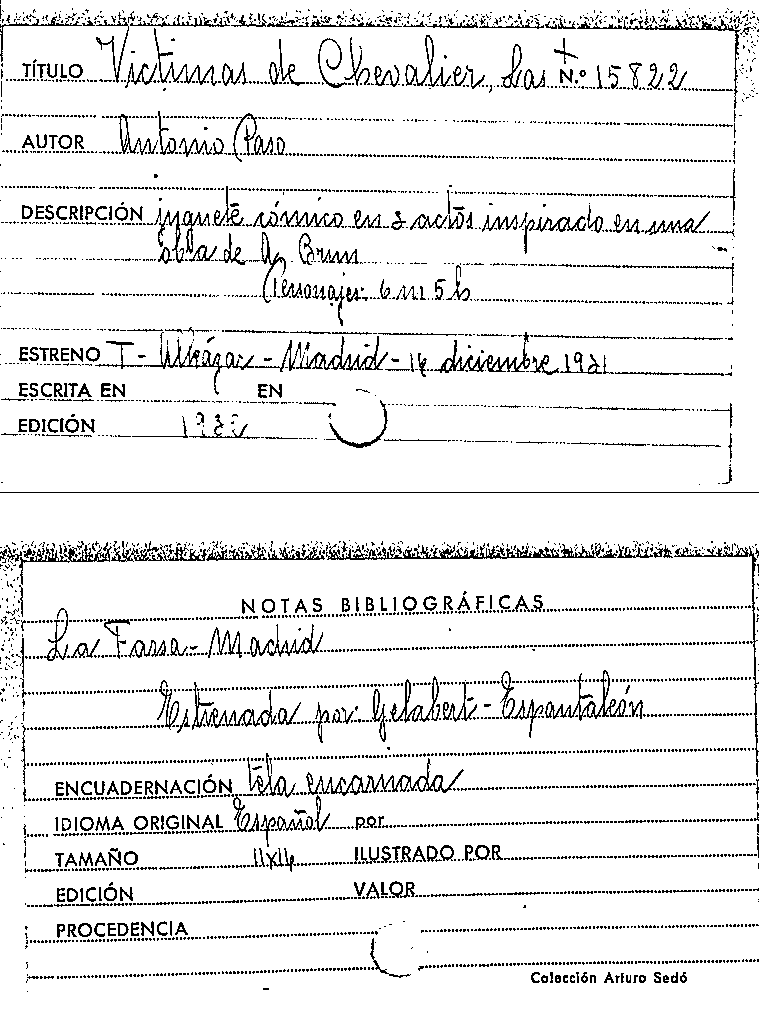 TÍTULO Victimas de Chevalier, Las N.º 15822
AUTOR Antonio Paso
DESCRIPCIÓN juguete cómico en 3 actos inspirado en una
obra de A. Brun
Personajes 6 m 5 h
ESTRENO T - Alkázar - Madrid - diciembre 1931
ESCRITA EN EN
EDICIÓN 1932
NOTAS BIBLIOGRÁFICAS
La Farsa - Madrid
Estrenada por: Gelabert - Espantaleón
ENCUADERNACIÓN tela encarnada
IDIOMA ORIGINAL Español por
TAMAÑO 11x14 ILUSTRADO POR
EDICIÓN VALOR
PROCEDENCIA
Colección Arturo Sedó